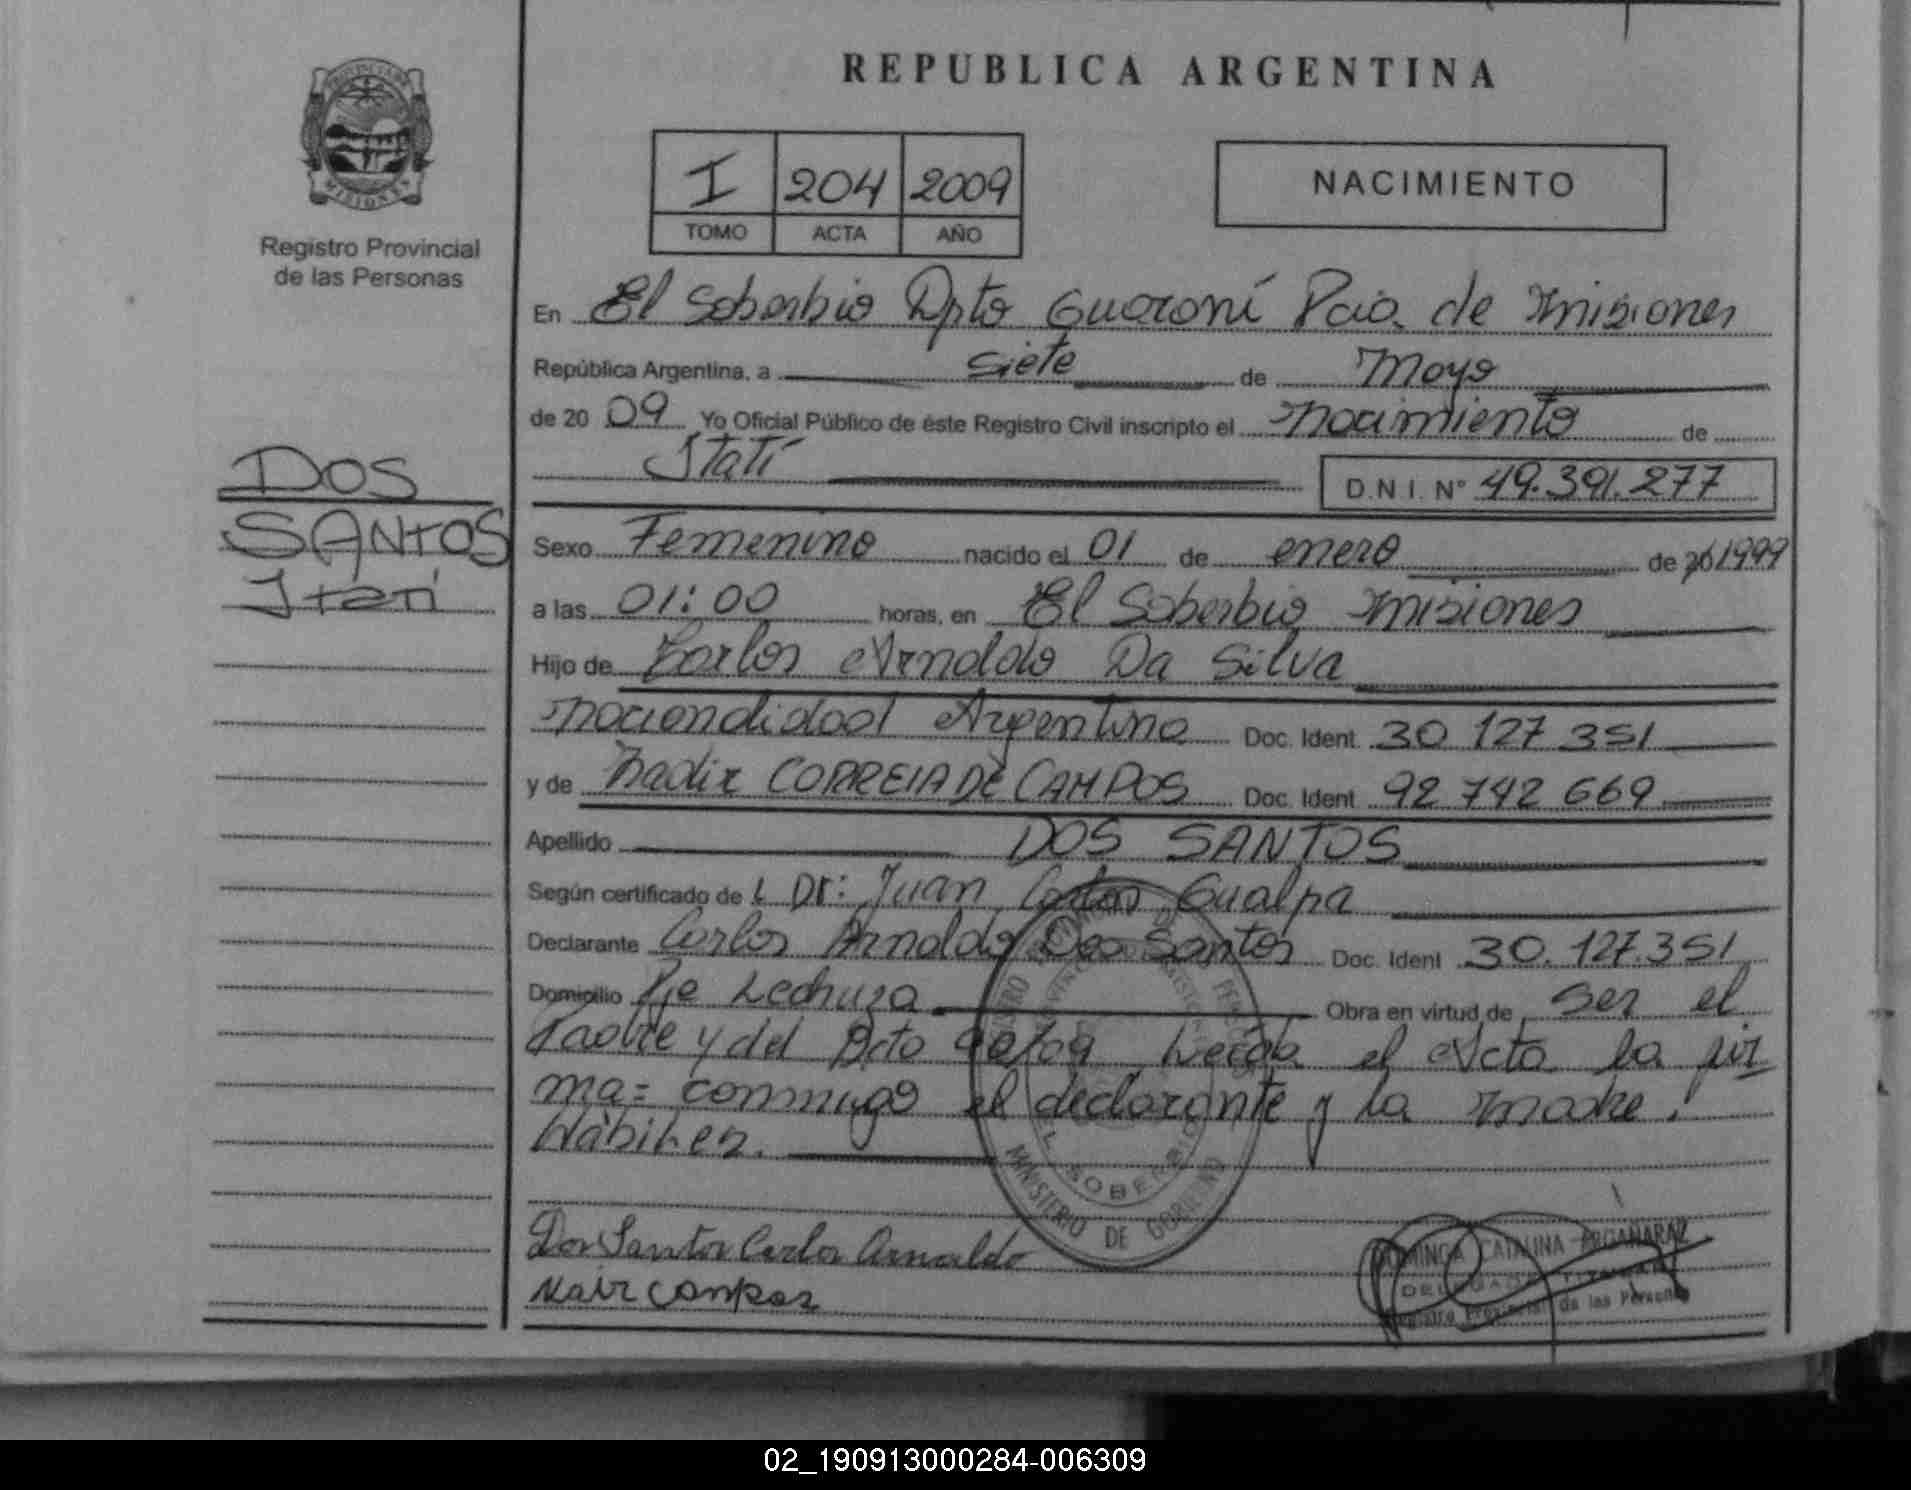 REPUBLICA ARGENTINA
PROVINCIA DE
MISIONES
Registro Provincial
de las Personas
I 204 2009
TOMO ACTA AÑO
NACIMIENTO
En El Soberbio Dpto Guaraní Pcia. de Misiones
República Argentina, a siete de Mayo
de 2009 Yo Oficial Público de éste Registro Civil inscripto el Nacimiento de
Itatí D.N.I. Nº 49.391.277
DOS
SANTOS
Itatí
Sexo Femenino nacido el 01 de enero de 20 1999
a las 01:00 horas, en El Soberbio Misiones
Hijo de Carlos Arnaldo Da Silva
Nacionalidad Argentina Doc. Ident. 30 127 351
y de Nadir CORREIA DE CAMPOS Doc. Ident. 92 742 669
Apellido DOS SANTOS
Según certificado de L Dr: Juan Carlos Gualpa
Declarante Carlos Arnaldo Dos Santos Doc. Ident 30.127.351
Domicilio Pje Lechuza Obra en virtud de ser el
Padre y del Dcto 90/09 Leída el Acta la fir
ma= conmigo el declarante y la madre.
Hábiles.
EL SOBERBIO
MINISTERIO DE GOBIERNO
Dos Santos Carlos Arnaldo
Nair Campos
DOMINGA CATALINA ARGAÑARAZ
DELEGADA TITULAR
Registro Provincial de las Personas
02_190913000284-006309